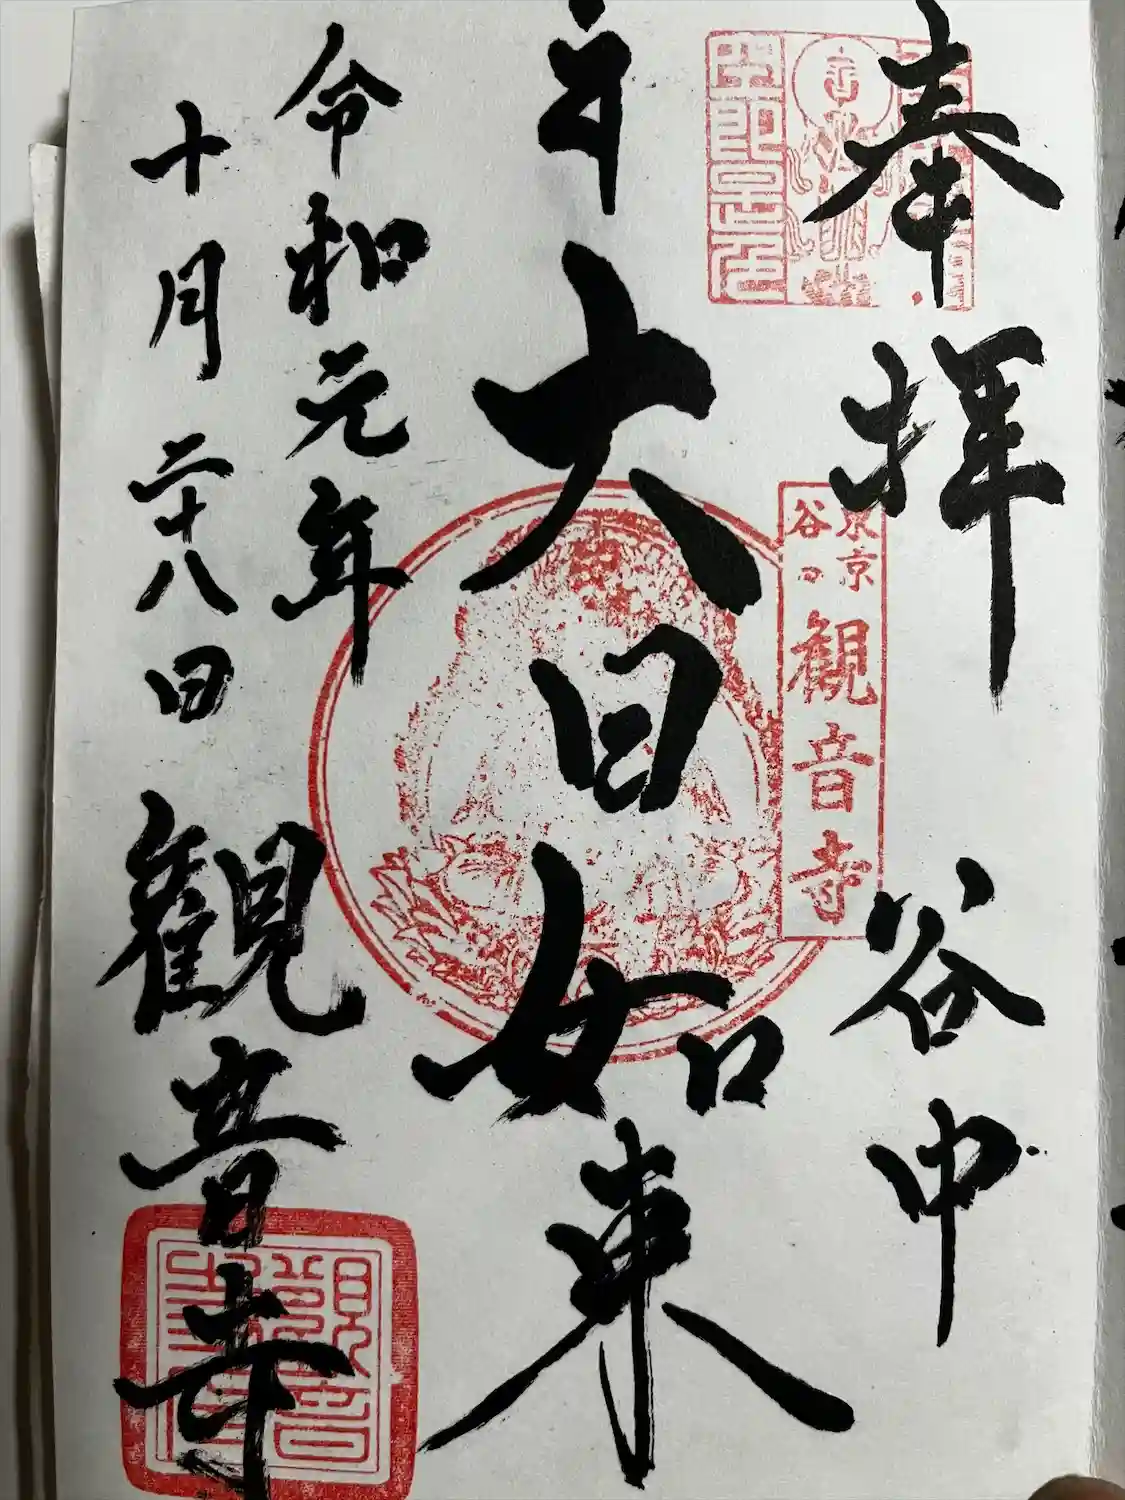 奉拝
谷中
大日如来
令和元年
十月二十八日
観音寺
東京
谷中
観音寺
観音寺